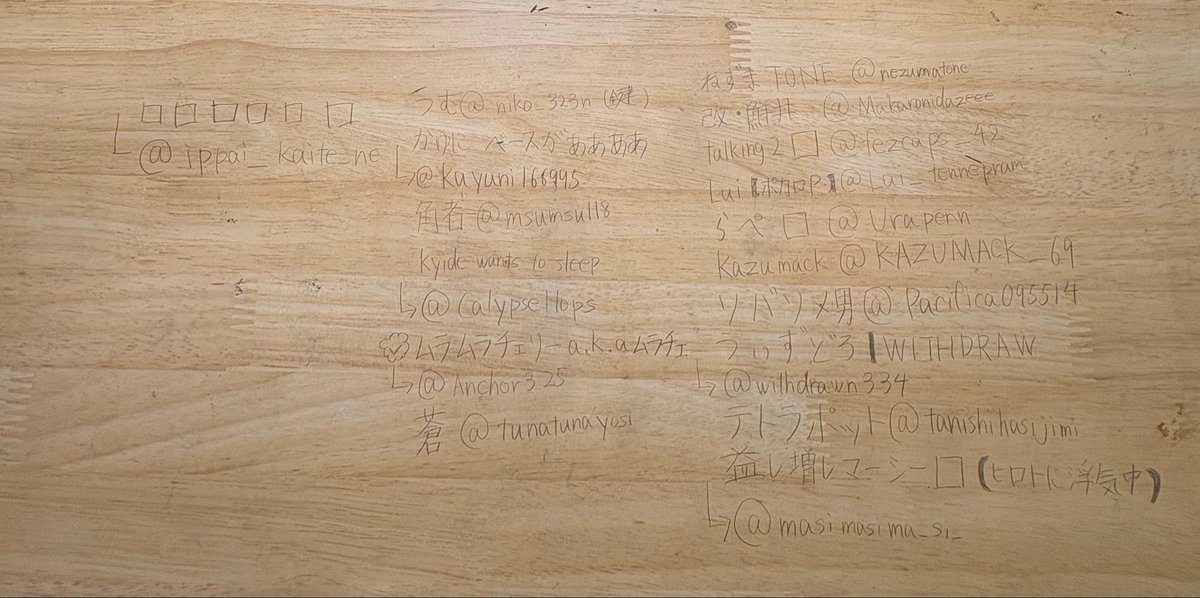 □□□□□□
↳@ippai_kaite_ne
うむ@niko_323n (鍵)
かけにベースがああああ
↳@kayuni166995
角者@msumsu118
kyide wants to sleep
↳@Calypsellops
ムラムラチェリーa.k.aムラチェ
↳@Anchor325
蒼 @tunatunayosi
ねずまTONE @nezumatone
改・鮪丼 @Makaronidazeee
talking2□@fezcaps_42
Lui【ボカロP】@Lui_tennepram
らぺ□@Urapenn
Kazumack @KAZUMACK_69
ソバツメ男@Pacifica095514
うぃずどろ|WITHDRAW
↳@withdrawn334
テトラポット@tanishihasijimi
益し増しマーシー□(ヒロトに浮気中)
↳@masimasima_si_